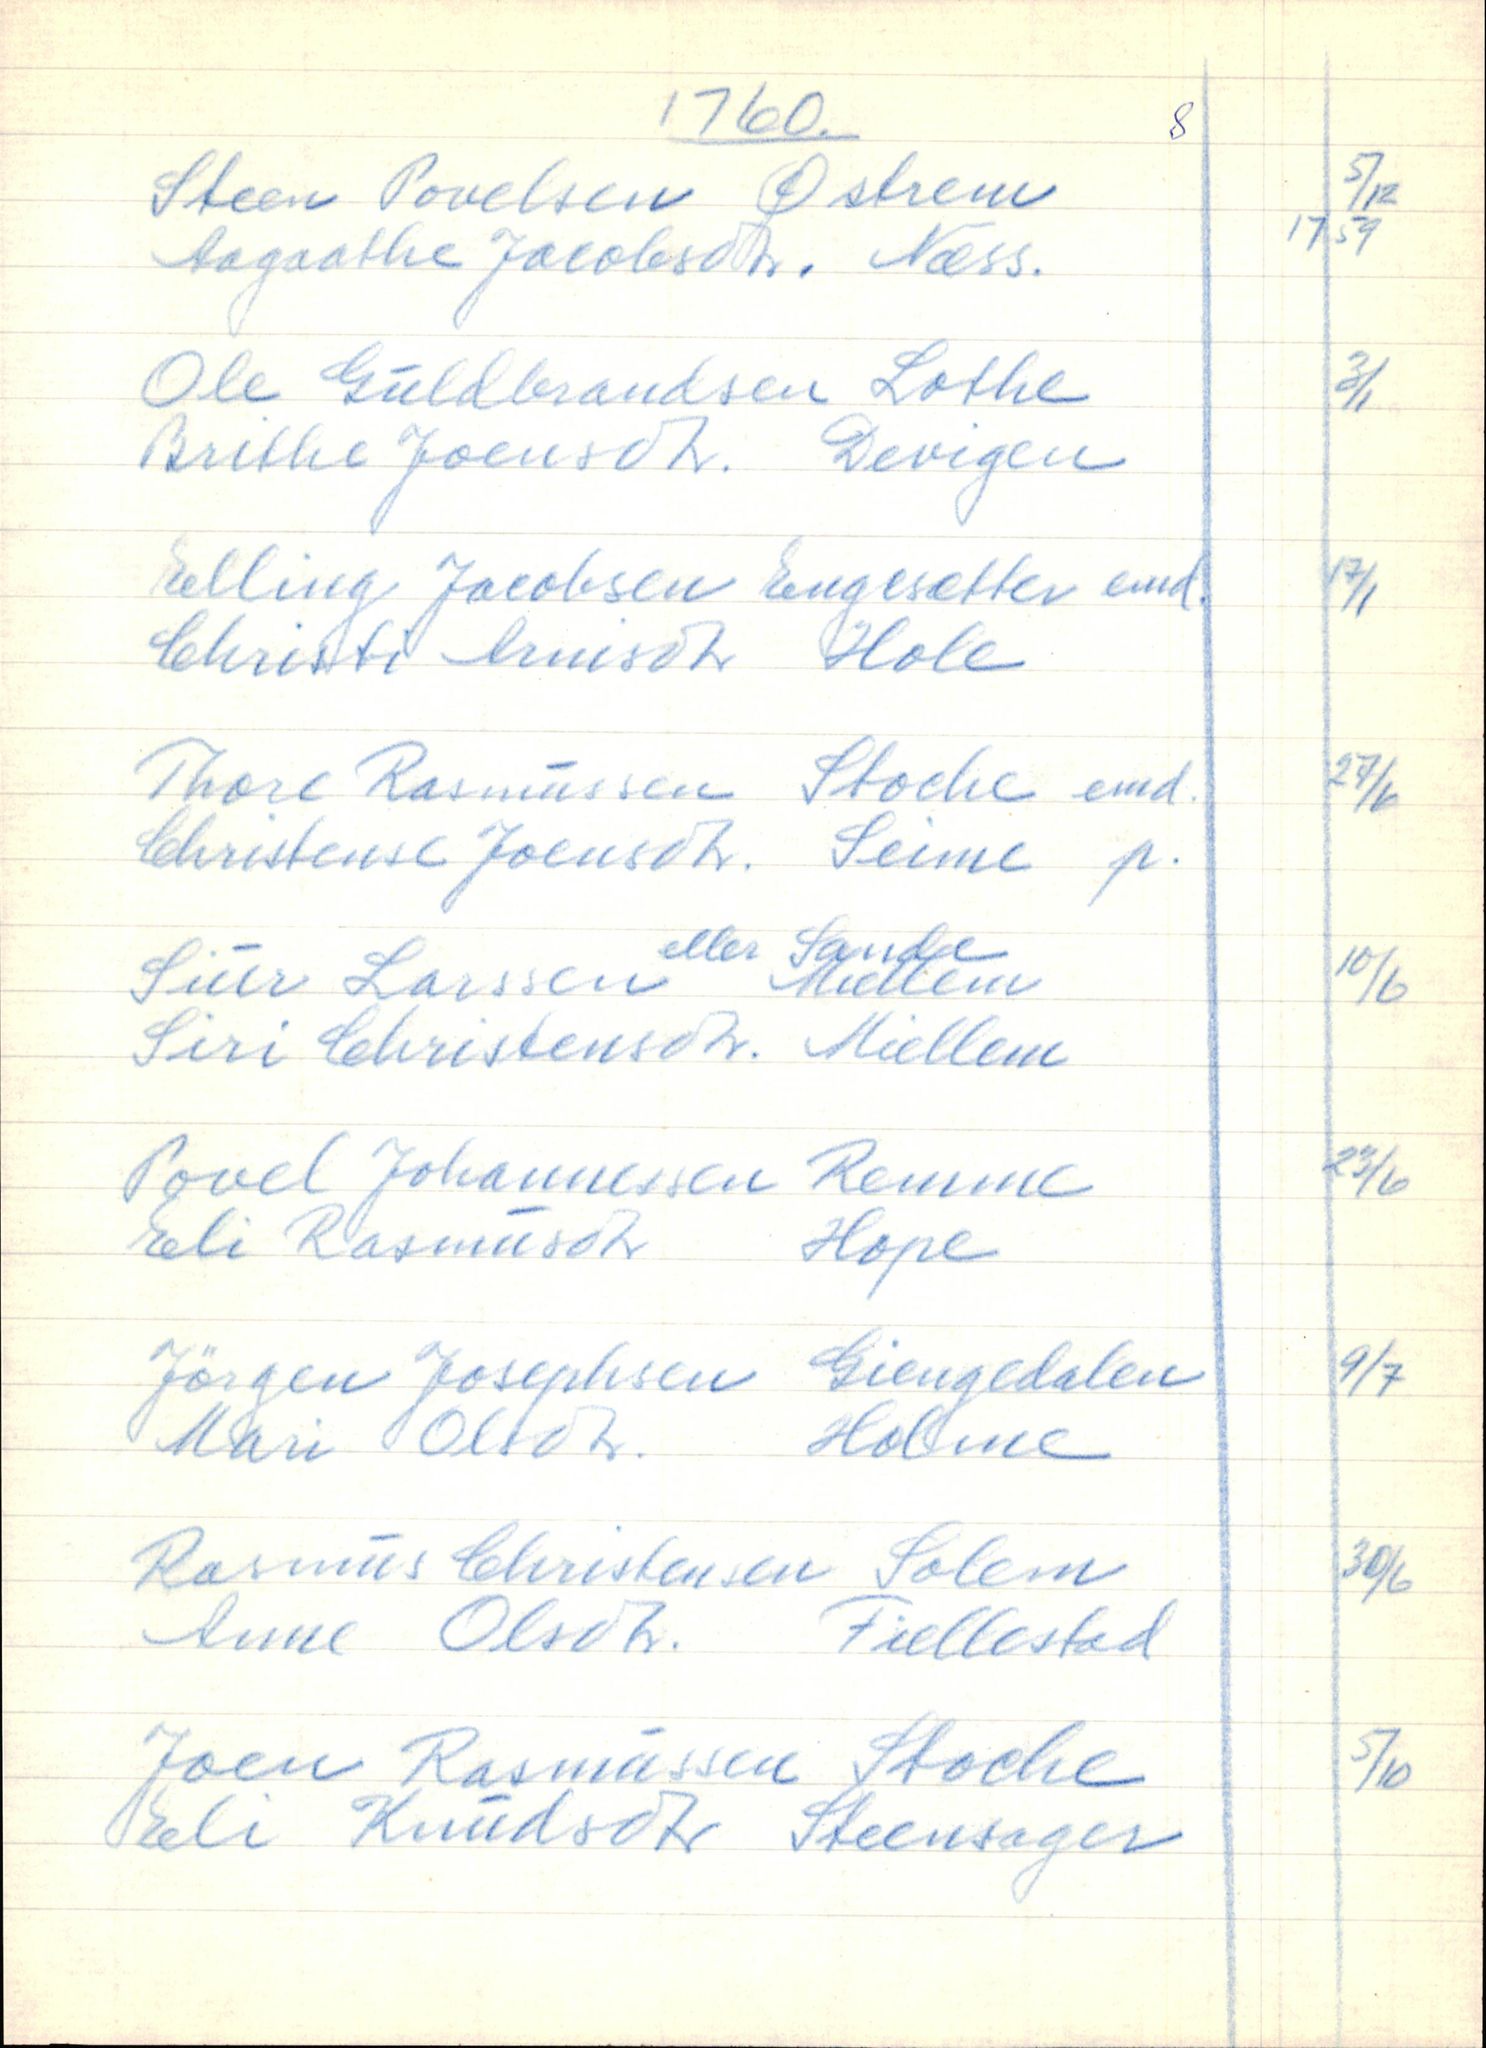 1760. 8
Steen Povelsen Østrem 5/12
Aagaathe Jacobsdtr. Næss. 1759
Ole Guldbrandsen Lothe 3/1
Brithe Joensdtr. Devigen
Elling Jacobsen Engesætter emd. 17/1
Christi Arnisdtr Hole
Thore Rasmussen Stoche emd. 27/6
Christense Joensdtr. Seime p.
eller Sande
Siur Larssen Miellem 10/6
Siri Christensdtr. Miellem
Povel Johannessen Remme 23/6
Eli Rasmusdtr Hope
Jörgen Josephsen Giengedalen 9/7
Mari Olsdtr. Holme
Rasmus Christensen Solem 30/6
Anne Olsdtr. Fiellestad
Joen Rasmussen Stoche 5/10
Eli Knudsdtr Steensager